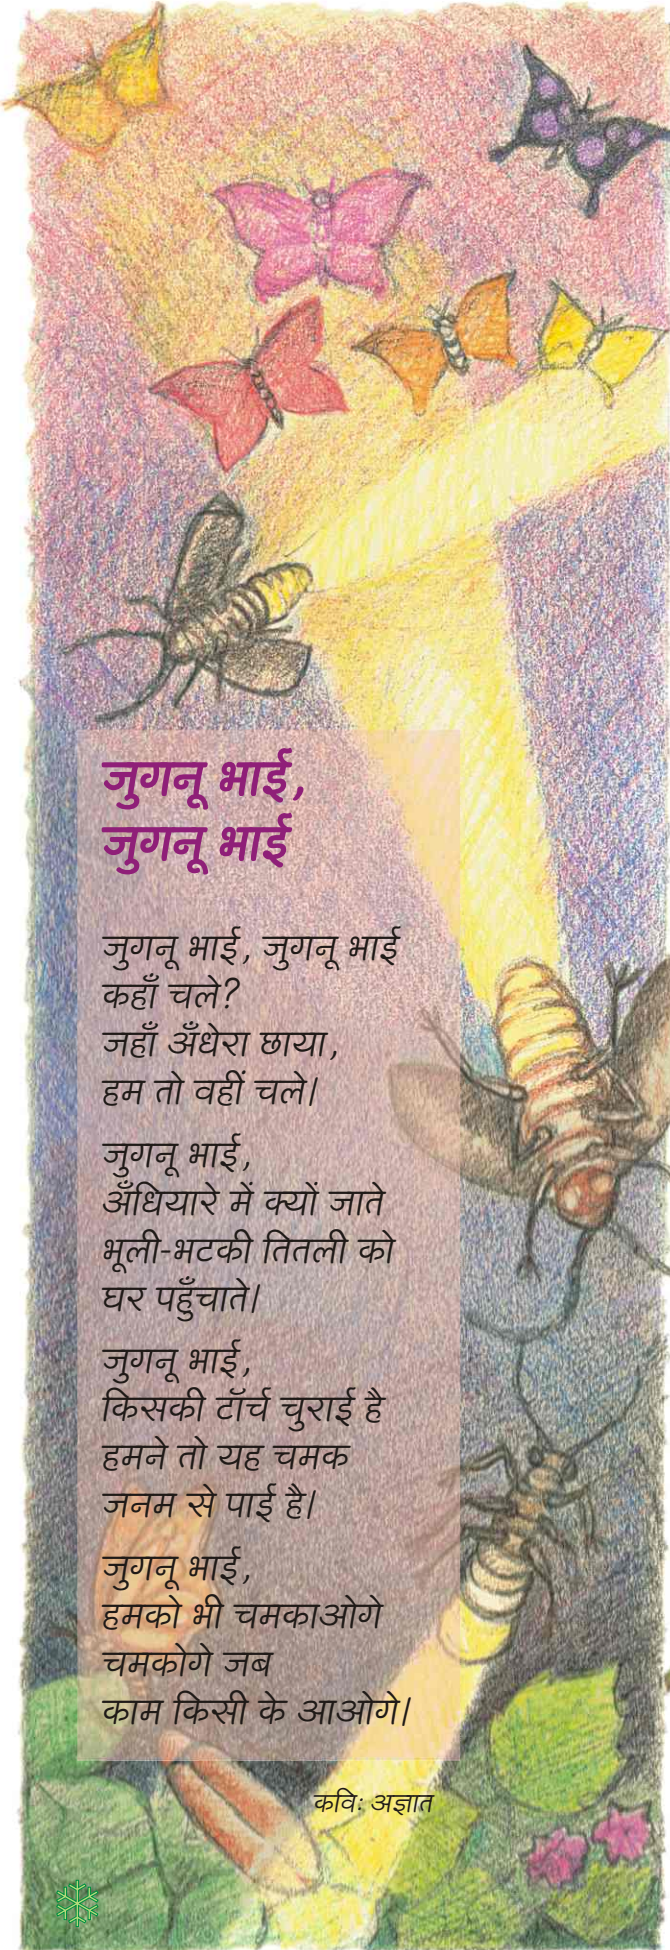 जुगनू भाई,
जुगनू भाई
जुगनू भाई, जुगनू भाई
कहाँ चले?
जहाँ अँधेरा छाया,
हम तो वहीं चले।
जुगनू भाई,
अँधियारे में क्यों जाते
भूली-भटकी तितली को
घर पहुँचाते।
जुगनू भाई,
किसकी टॉर्च चुराई है
हमने तो यह चमक
जनम से पाई है।
जुगनू भाई,
हमको भी चमकाओगे
चमकोगे जब
काम किसी के आओगे।
कविः अज्ञात